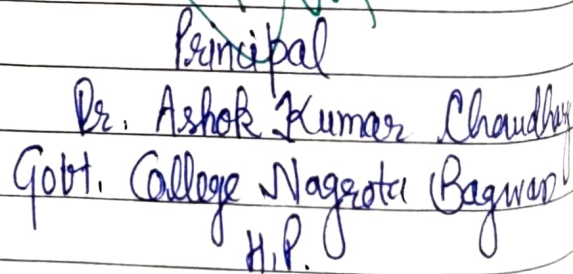 Principal
Dr. Ashok Kumar Chaudhary
Govt. College Nagrota Bagwan
H.P.